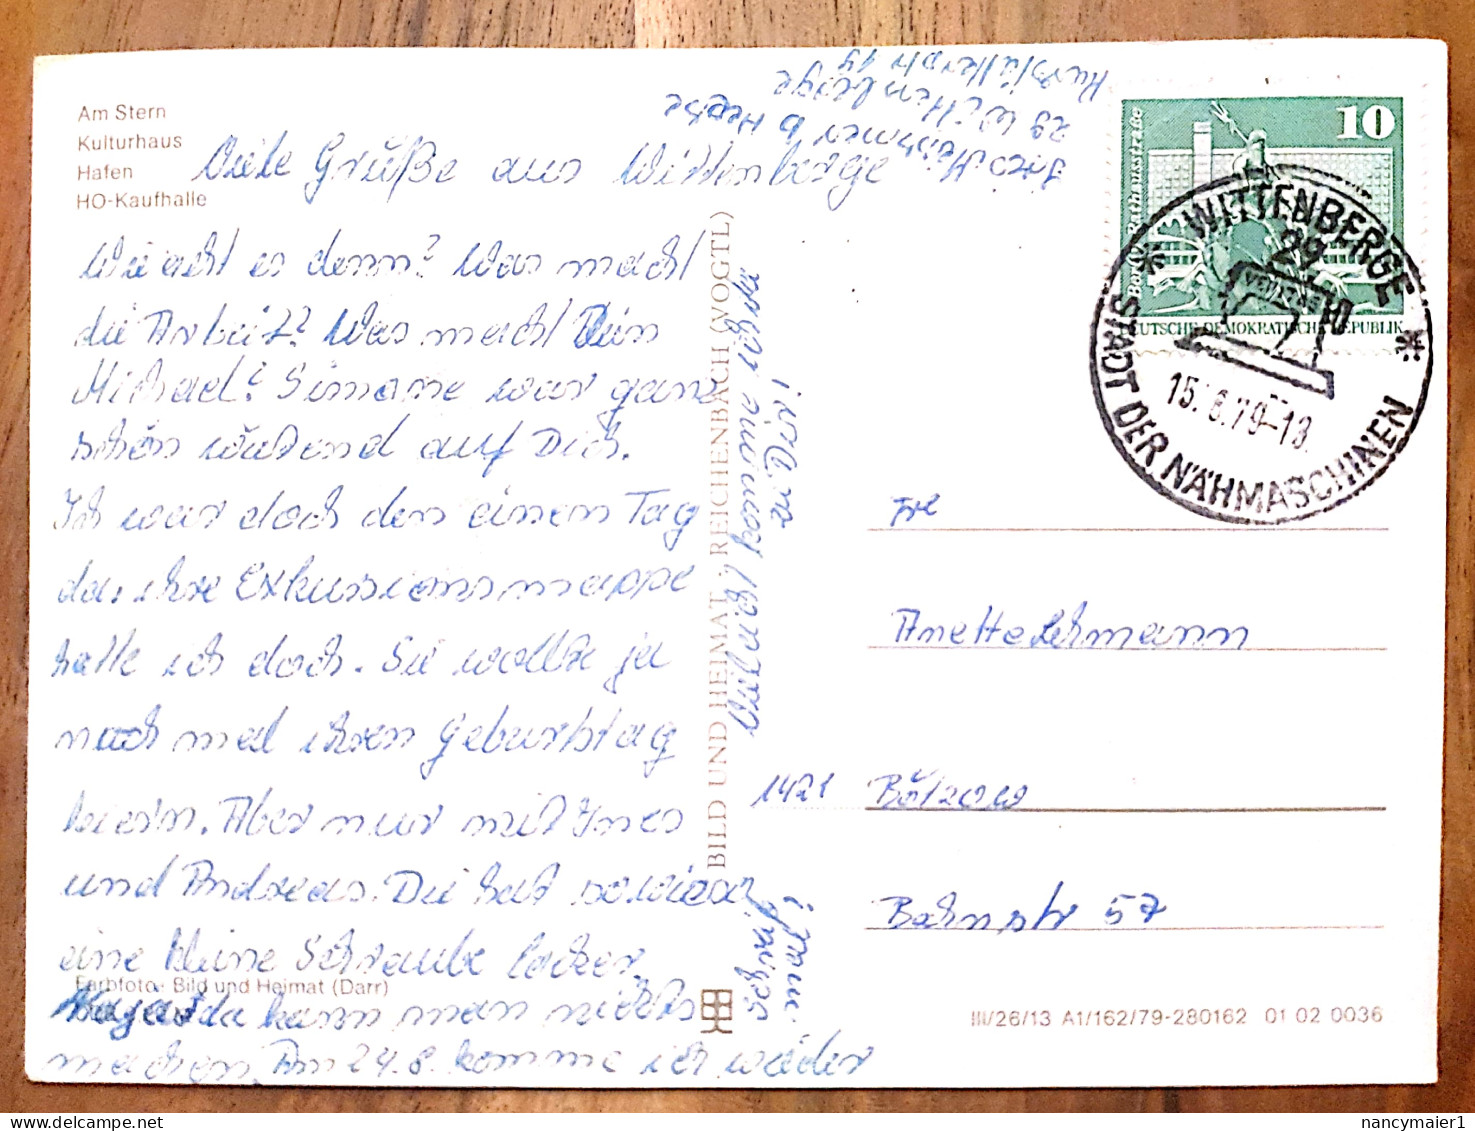 Am Stern
Kulturhaus
Hafen
HO-Kaufhalle
Viele Grüße aus Wittenberge
Wie geht es denn? Was macht
die Arbeit? Was macht Dein
Michael? Simone war ganz
schön wütend auf Dich.
Ich war doch den einen Tag
da, ihre Exkursionsmappe
hatte ich doch. Sie wollte ja
noch mal ihren Geburtstag
feiern. Aber nur mit Ines
und Andreas. Die hat sowieso
eine kleine Schraube locker.
Farbfoto: Bild und Heimat (Darr)
Na ja, da kann man nichts
machen. Am 24.8. komme ich wieder
Vielleicht komme ich da
zu Dir!
schreib
mal!
BILD UND HEIMAT REICHENBACH (VOGTL)
b. Heese
29 Wittenberge
10
Berlin, Rathausstraße
DEUTSCHE DEMOKRATISCHE REPUBLIK
* WITTENBERGE *
29
VERITAS
15.8.79-13
STADT DER NÄHMASCHINEN
Frl
Anette Lehmann
1421 Bötzow
Bahnstr 57
III/26/13 A1/162/79-280162 01 02 0036
nancymaier1